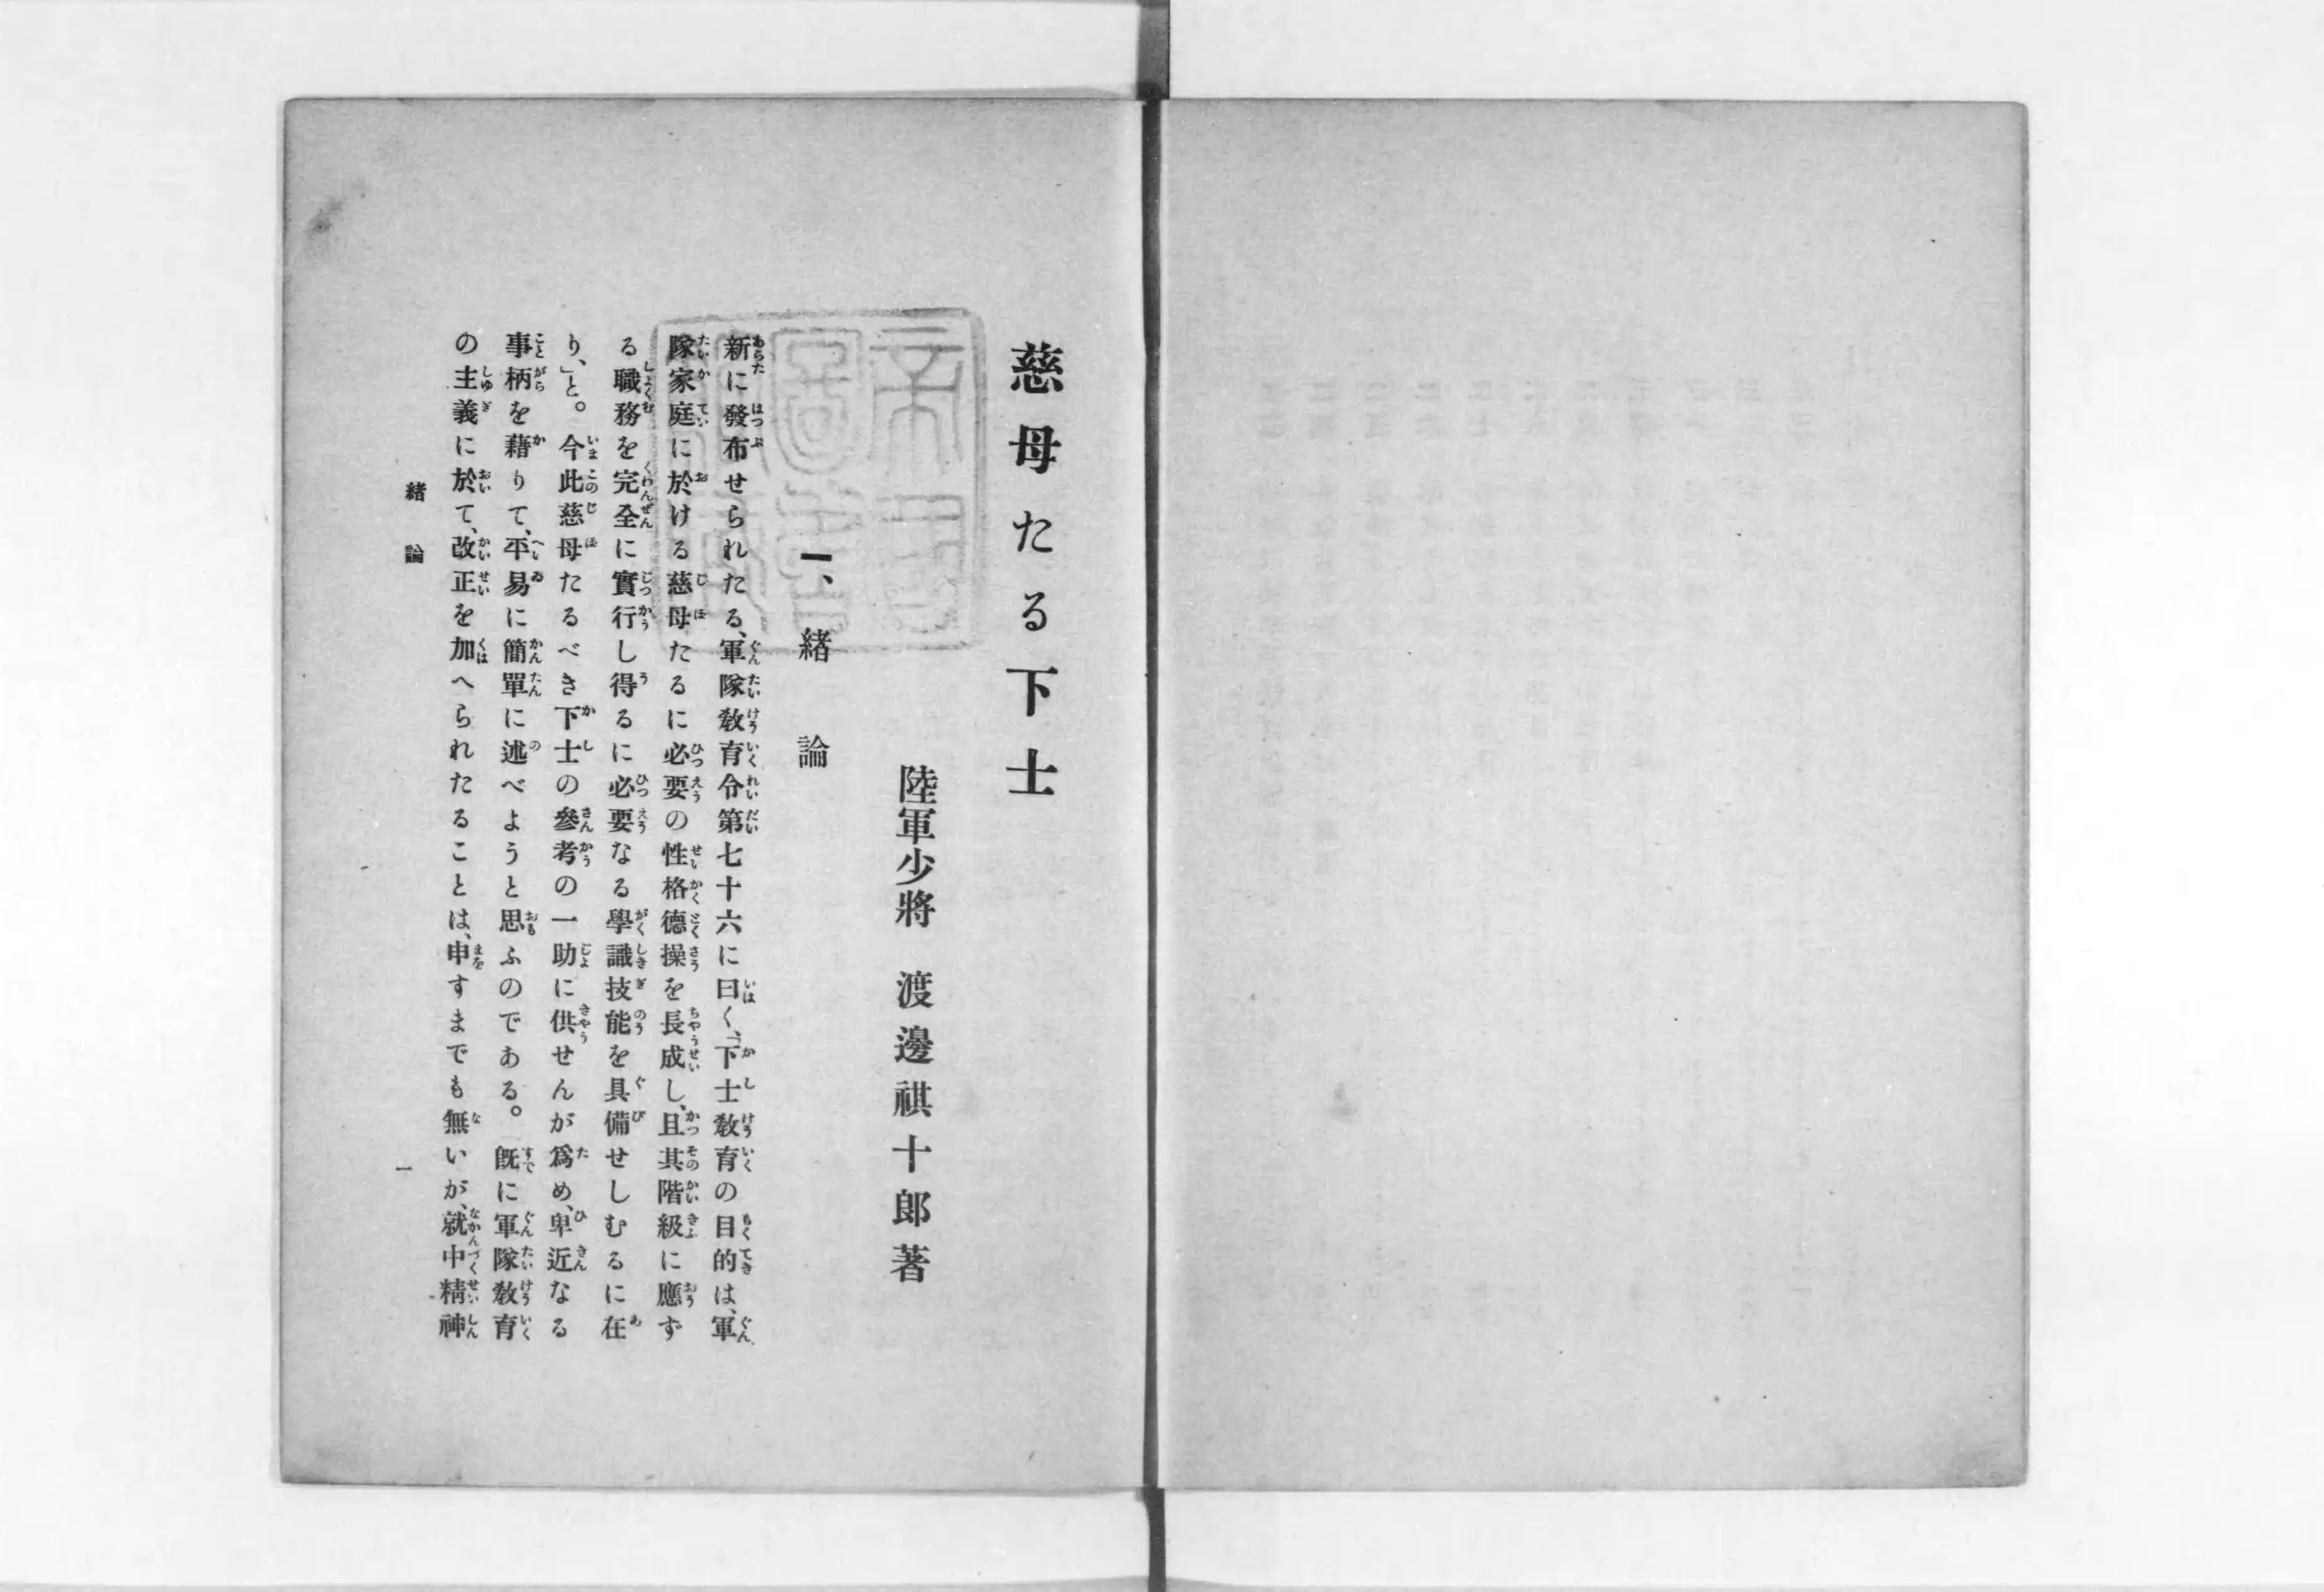 慈母たる下士
陸軍少將　渡邊祺十郎著
一、緒　論
新に發布せられたる、軍隊敎育令第七十六に曰く、「下士敎育の目的は、軍
隊家庭に於ける慈母たるに必要の性格德操を長成し、且其階級に應ず
る職務を完全に實行し得るに必要なる學識技能を具備せしむるに在
り、」と。今此慈母たるべき下士の參考の一助に供せんが爲め、卑近なる
事柄を藉りて、平易に簡單に述べようと思ふのである。既に軍隊敎育
の主義に於て、改正を加へられたることは、申すまでも無いが、就中精神
緒　論
一